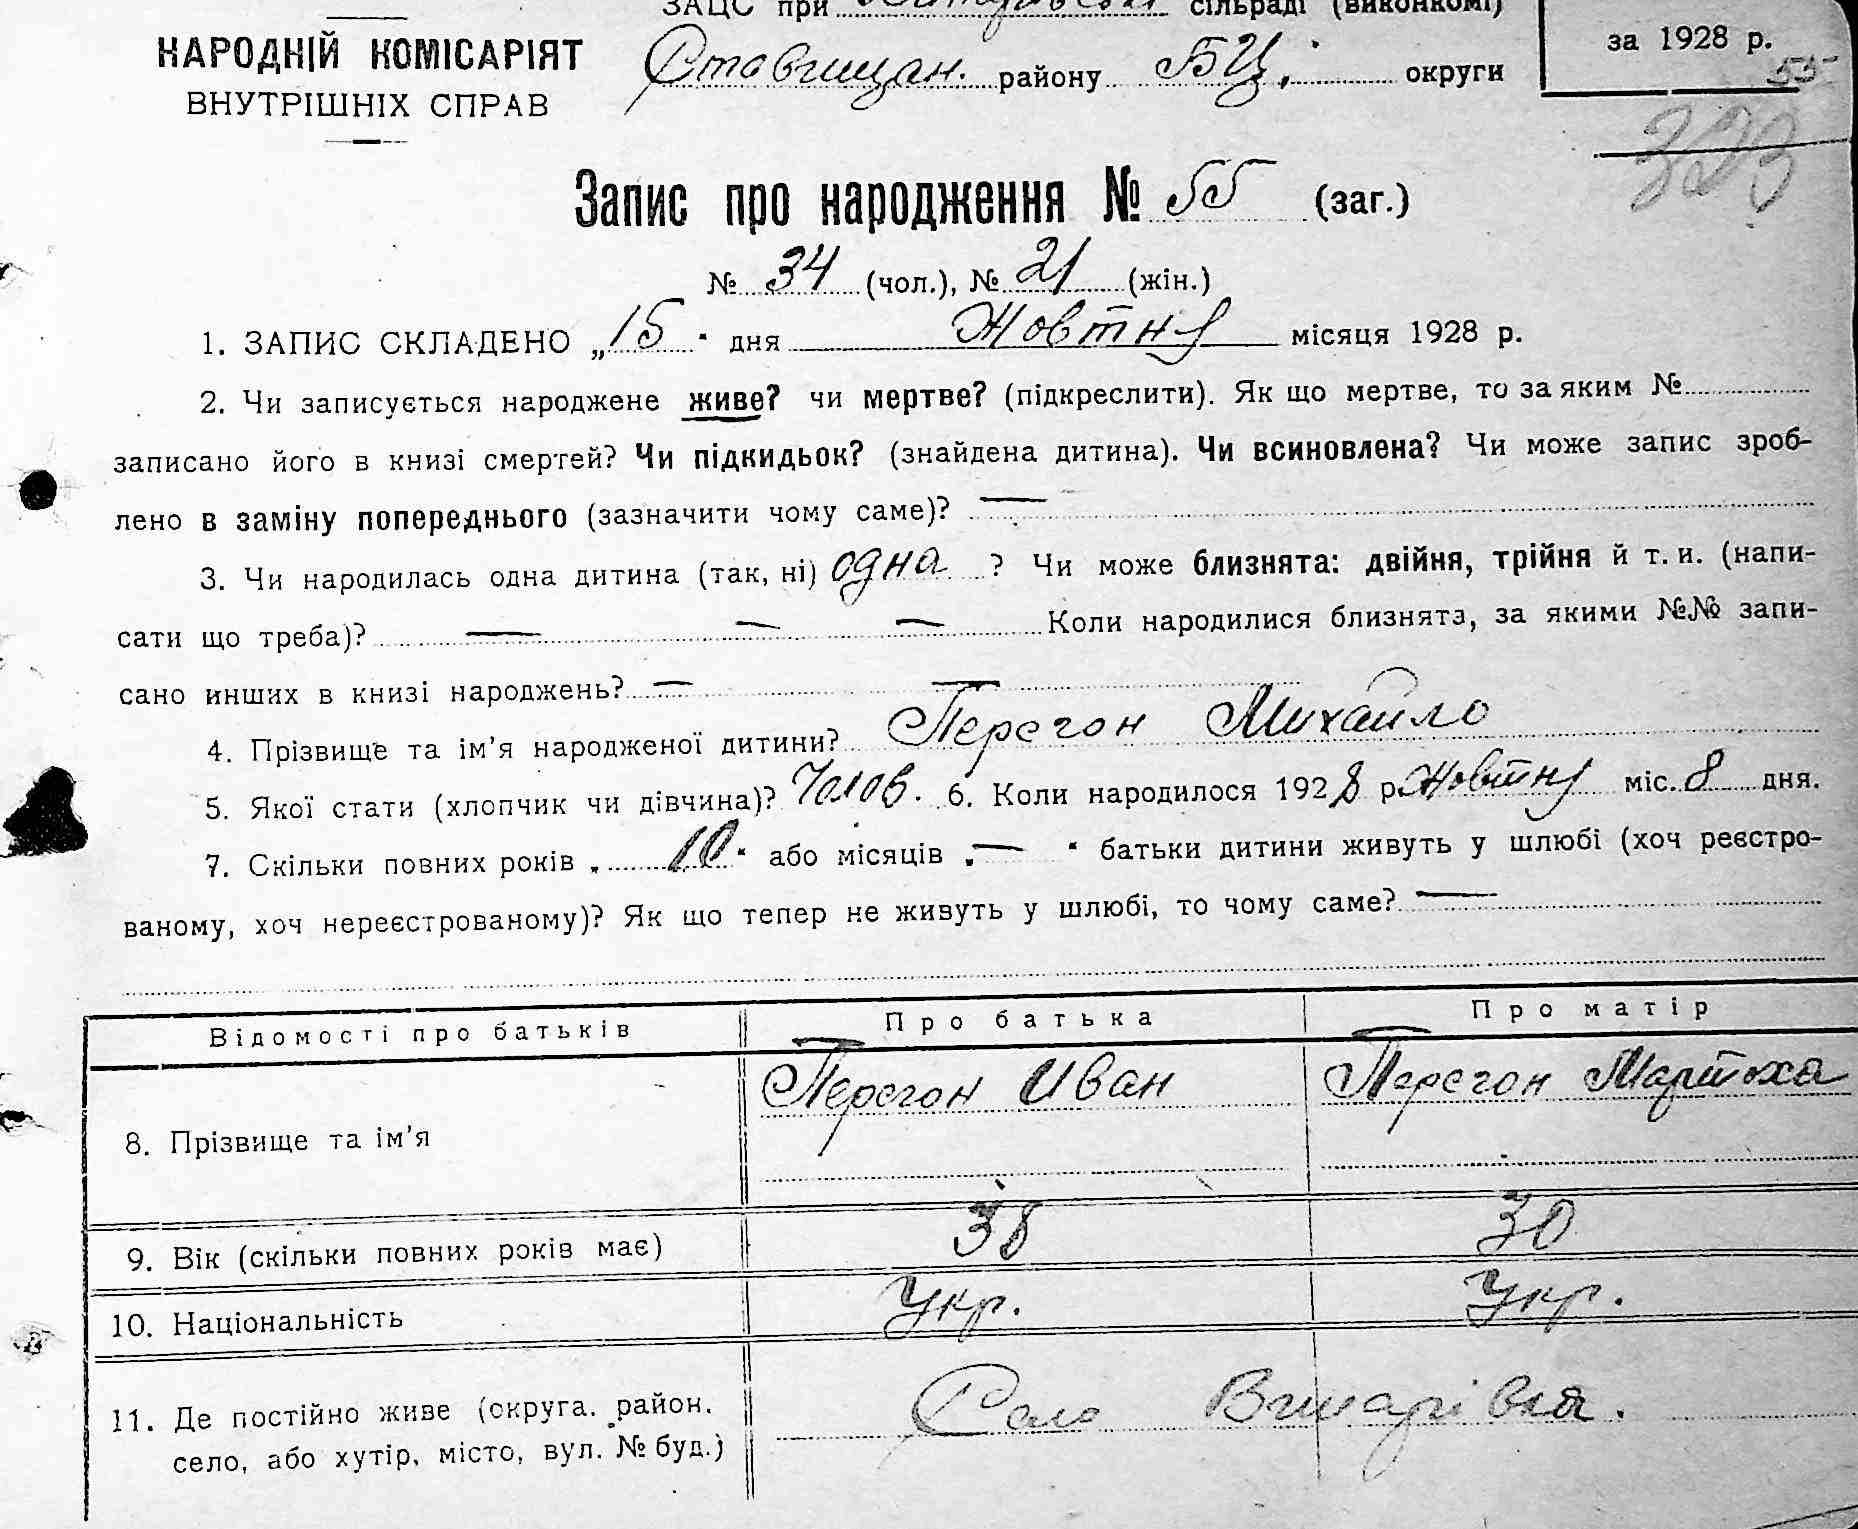 ЗАЦС при сільраді (виконкомі)
НАРОДНІЙ КОМІСАРІЯТ
ВНУТРІШНІХ СПРАВ
Ставищан. району БЦ. округи
за 1928 р.
55
323
Запис про народження № 55 (заг.)
№ 34 (чол.), № 21 (жін.)
1. ЗАПИС СКЛАДЕНО „15" дня Жовтня місяця 1928 р.
2. Чи записується народжене живе? чи мертве? (підкреслити). Як що мертве, то за яким №
записано його в книзі смертей? Чи підкидьок? (знайдена дитина). Чи всиновлена? Чи може запис зроб-
лено в заміну попереднього (зазначити чому саме)? —
3. Чи народилась одна дитина (так, ні) одна ? Чи може близнята: двійня, трійня й т. и. (напи-
сати що треба)? — — — Коли народилися близнята, за якими №№ запи-
сано инших в книзі народжень? —
4. Прізвище та ім'я народженої дитини? Перегон Михайло
5. Якої стати (хлопчик чи дівчина)? Чолов. 6. Коли народилося 1928 р. Жовтня міс. 8 дня.
7. Скільки повних років „10" або місяців „—" батьки дитини живуть у шлюбі (хоч реєстро-
ваному, хоч нереєстрованому)? Як що тепер не живуть у шлюбі, то чому саме? —
Відомості про батьків Про батька Про матір
8. Прізвище та ім'я Перегон Иван Перегон Мартоха
9. Вік (скільки повних років має) 38 30
10. Національність Укр. Укр.
11. Де постійно живе (округа, район,
село, або хутір, місто, вул. № буд.) Село Винарівка.